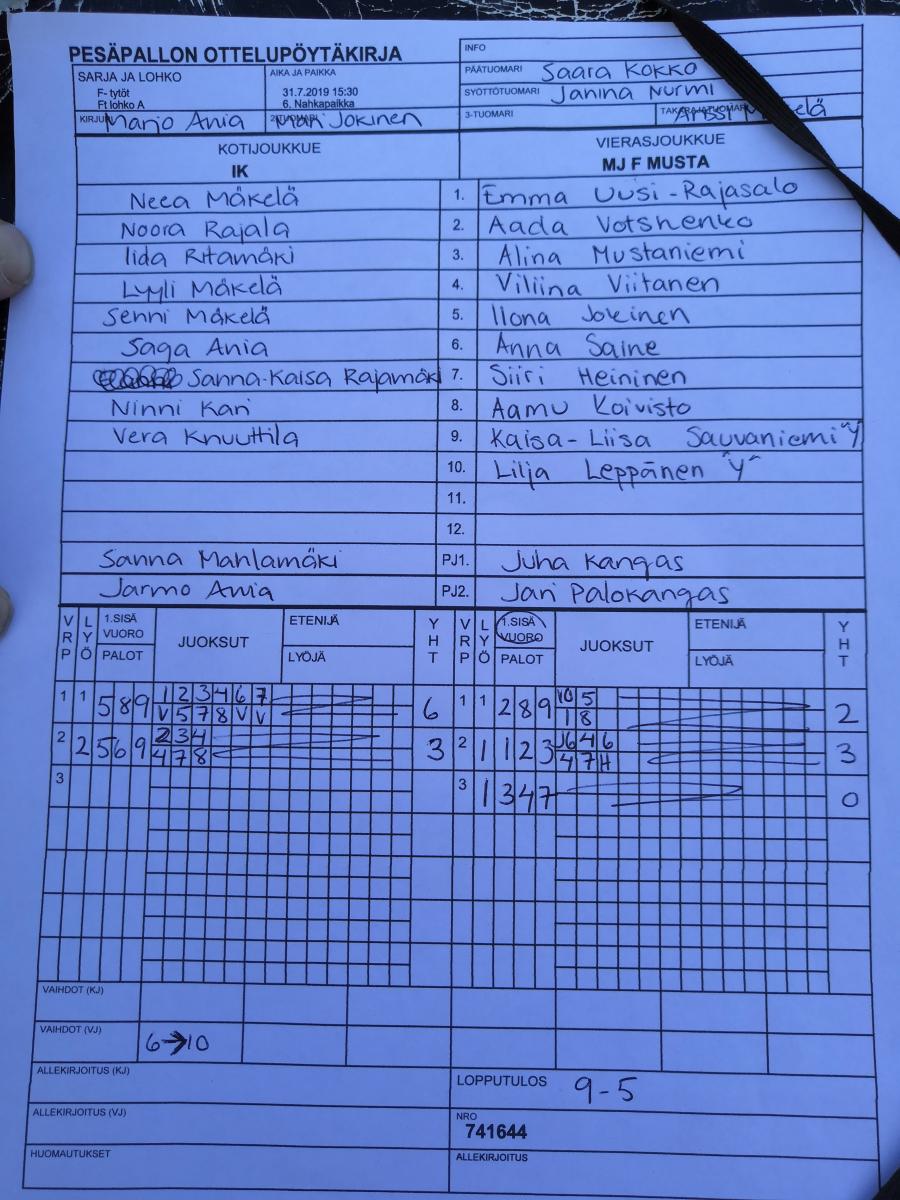 PESÄPALLON OTTELUPÖYTÄKIRJA
INFO
SARJA JA LOHKO
F- tytöt
Ft lohko A
AIKA JA PAIKKA
31.7.2019 15:30
6. Nahkapaikka
PÄÄTUOMARI Saara Kokko
SYÖTTÖTUOMARI Janina Nurmi
KIRJURI Marjo Ania
2-TUOMARI Mari Jokinen
3-TUOMARI
TAKARAJATUOMARI Mäkelä
KOTIJOUKKUE
IK
VIERASJOUKKUE
MJ F MUSTA
Neea Mäkelä 1. Emma Uusi-Rajasalo
Noora Rajala 2. Aada Votshenko
Iida Ritamäki 3. Alina Mustaniemi
Lyyli Mäkelä 4. Viliina Viitanen
Senni Mäkelä 5. Ilona Jokinen
Saga Ania 6. Anna Saine
Sanna-Kaisa Rajamäki 7. Siiri Heininen
Ninni Kari 8. Aamu Koivisto
Vera Knuuttila 9. Kaisa-Liisa Sauvaniemi "Y"
10. Lilja Leppänen "Y"
11.
12.
Sanna Mahlamäki PJ1. Juha Kangas
Jarmo Ania PJ2. Jari Palokangas
VRP LYÖ 1.SISÄ VUORO PALOT JUOKSUT ETENIJÄ LYÖJÄ YHT VRP LYÖ 1.SISÄ VUORO PALOT JUOKSUT ETENIJÄ LYÖJÄ YHT
1 1 5 8 9 1 2 3 4 6 7 6 1 1 2 8 9 10 5 2
V 5 7 8 V V 1 8
2 2 5 6 9 2 3 4 3 2 1 1 2 3 J6 4 6 3
4 7 8 4 7 H
3 3 1 3 4 7 0
VAIHDOT (KJ)
VAIHDOT (VJ) 6→10
ALLEKIRJOITUS (KJ)
LOPPUTULOS 9-5
ALLEKIRJOITUS (VJ)
NRO
741644
HUOMAUTUKSET
ALLEKIRJOITUS